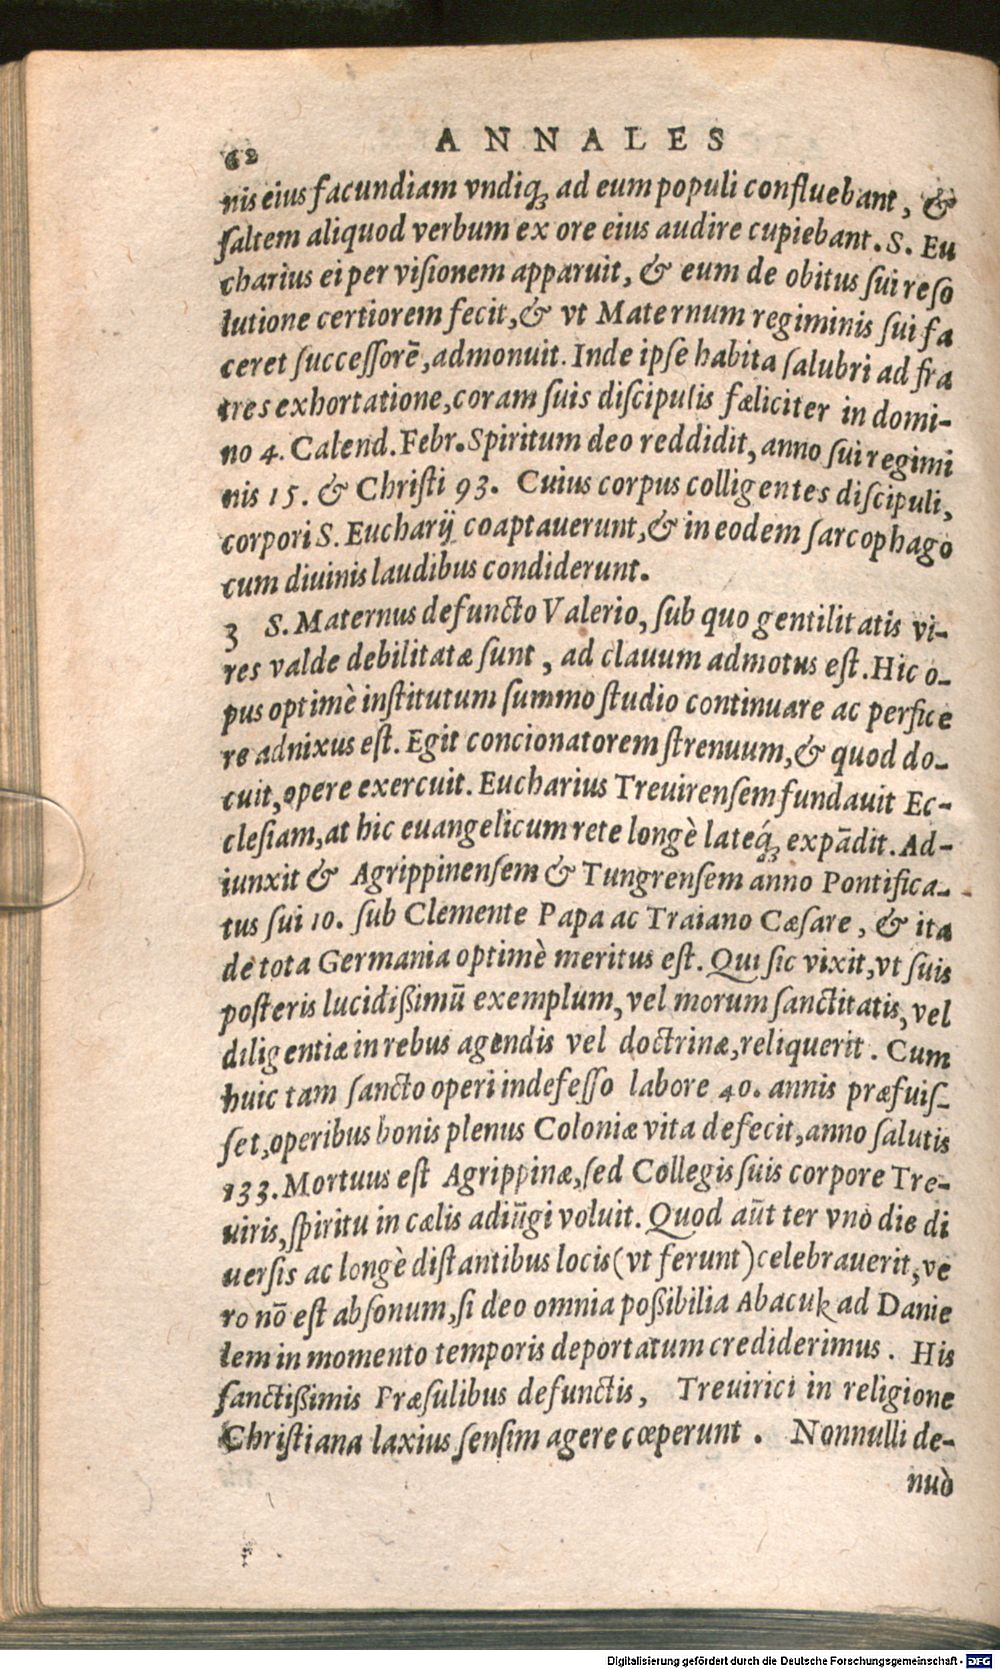 62 ANNALES
nis eius facundiam vndiq́ꝫ ad eum populi confluebant, &
ſaltem aliquod verbum ex ore eius audire cupiebant. S. Eu
charius ei per viſionem apparuit, & eum de obitus ſui reſo
lutione certiorem fecit, & vt Maternum regiminis ſui fa
ceret ſucceſſorē, admonuit. Inde ipſe habita ſalubri ad fra
tres exhortatione, coram ſuis diſcipulis fæliciter in domi-
no 4. Calend. Febr. Spiritum deo reddidit, anno ſui regimi
nis 15. & Chriſti 93. Cuius corpus colligentes diſcipuli,
corpori S. Eucharij coaptauerunt, & in eodem ſarcophago
cum diuinis laudibus condiderunt.
3 S. Maternus defuncto Valerio, ſub quo gentilitatis vi-
res valde debilitatæ ſunt, ad clauum admotus eſt. Hic o-
pus optimè inſtitutum ſummo ſtudio continuare ac perfice
re adnixus eſt. Egit concionatorem ſtrenuum, & quod do-
cuit, opere exercuit. Eucharius Treuirenſem fundauit Ec-
cleſiam, at hic euangelicum rete longè lateq́ꝫ expādit. Ad-
iunxit & Agrippinenſem & Tungrenſem anno Pontifica-
tus ſui 10. ſub Clemente Papa ac Traiano Cæſare, & ita
de tota Germania optimè meritus eſt. Qui ſic vixit, vt ſuis
poſteris lucidißimū exemplum, vel morum ſanctitatis, vel
diligentiæ in rebus agendis vel doctrinæ, reliquerit. Cum
huic tam ſancto operi indefeſſo labore 40. annis præfuiſ-
ſet, operibus bonis plenus Coloniæ vita defecit, anno ſalutis
133. Mortuus eſt Agrippinæ, ſed Collegis ſuis corpore Tre-
uiris, ſpiritu in cælis adiūgi voluit. Quod aūt ter vno die di
uerſis ac longè diſtantibus locis (vt ferunt) celebrauerit, ve
ro nō eſt abſonum, ſi deo omnia poßibilia Abacuk ad Danie
lem in momento temporis deportatum crediderimus. His
ſanctißimis Præſulibus defunctis, Treuirici in religione
Chriſtiana laxius ſenſim agere cœperunt. Nonnulli de-
nuò
Digitalisierung gefördert durch die Deutsche Forschungsgemeinschaft - DFG